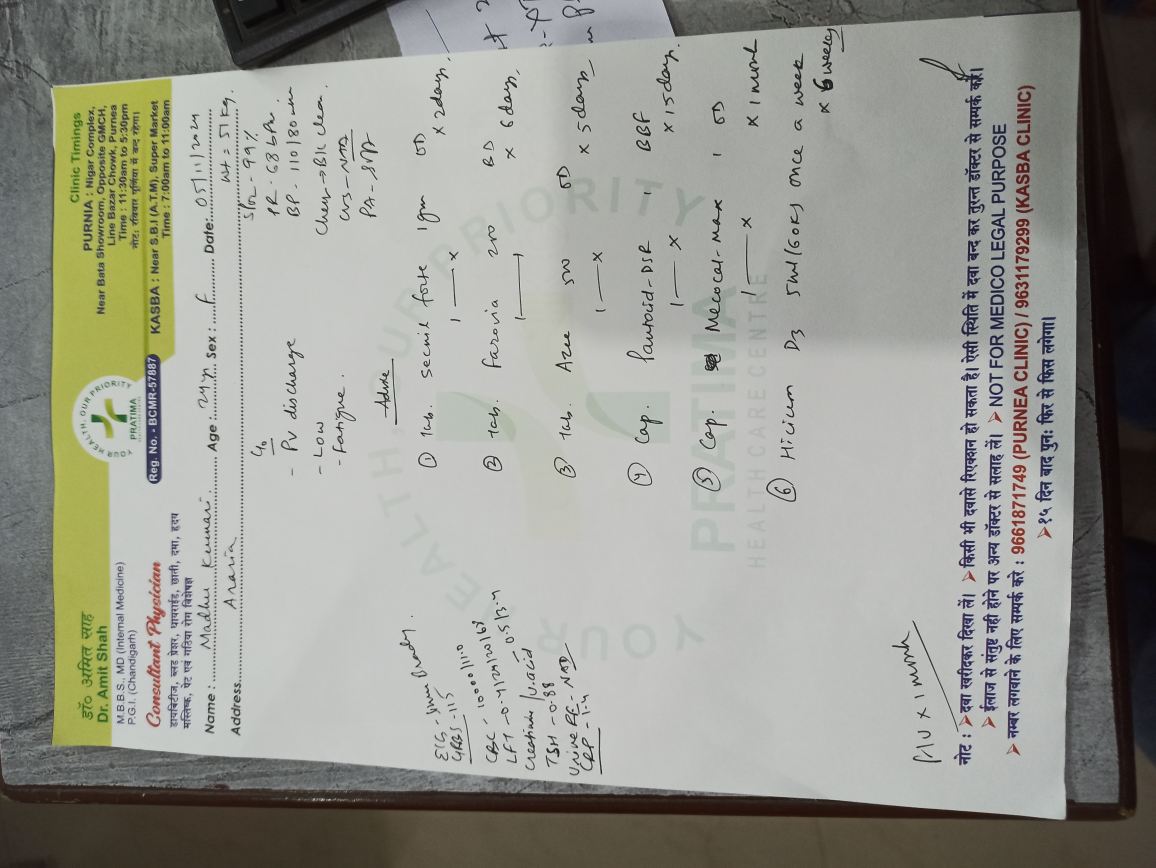 डॉ० अमित साह
Dr. Amit Shah
M.B.B.S., MD (Internal Medicine)
P.G.I. (Chandigarh)
Consultant Physician
डायबिटीज, ब्लड प्रेशर, थायराईड, छाती, दमा, हृदय
मस्तिष्क, पेट एवं गठिया रोग विशेषज्ञ
YOUR HEALTH, OUR PRIORITY
PRATIMA
Reg. No. - BCMR-57887
Clinic Timings
PURNIA : Nigar Complex,
Near Bata Showroom, Opposite GMCH,
Line Bazar Chowk, Purnea
Time : 11:30am to 5:30pm
नोट: रविवार पूर्णिया में बन्द रहेगा।
KASBA : Near S.B.I (A.T.M), Super Market
Time : 7:00am to 11:00am
Name : Madhu Kumari Age : 24yr Sex : F Date: 05/11/2024
Address Araria Wt = 51 kg.
SpO2 - 99%
PR - 68 bpm
BP - 110/80 mm
Chest → B/L clear
CVS - NAD
PA - Soft
C/o
- PV discharge
- Low
- Fatigue.
Advice
① Tab. Secnil forte 1gm OD
1 — x x 2 days.
② Tab. Farovia 200 BD
1 — 1 x 6 days.
③ Tab. Azee 500 OD
1 — x x 5 days
④ Cap. Pantocid-DSR 1 BBF
1 — x x 15 days.
⑤ Cap. Mecocal-Max 1 OD
1 — x x 1 month
⑥ D3 5ml/60K) once a week
x 6 weeks
ECG - Sinus Brady.
GRBS - 115
CBC - 10,000/11.0
LFT - 0.4/24/20/167
Creatinine/U.acid - 0.5/3.4
TSH - 0.88
Urine RE - NAD
CRP - 1.4
YOUR HEALTH, OUR PRIORITY
PRATIMA
HEALTH CARE CENTRE
R/V x 1 month
नोट : ➤ दवा खरीदकर दिखा लें। ➤ किसी भी दवासे रिएक्शन हो सकता है। ऐसी स्थिति में दवा बन्द कर तुरन्त डॉक्टर से सम्पर्क करें।
➤ ईलाज से संतुष्ट नही होने पर अन्य डॉक्टर से सलाह लें। ➤ NOT FOR MEDICO LEGAL PURPOSE
➤ नम्बर लगवाने के लिए सम्पर्क करे : 9661871749 (PURNEA CLINIC) / 9631179299 (KASBA CLINIC)
➤ १५ दिन बाद पुन: फिर से फिस लगेगा।